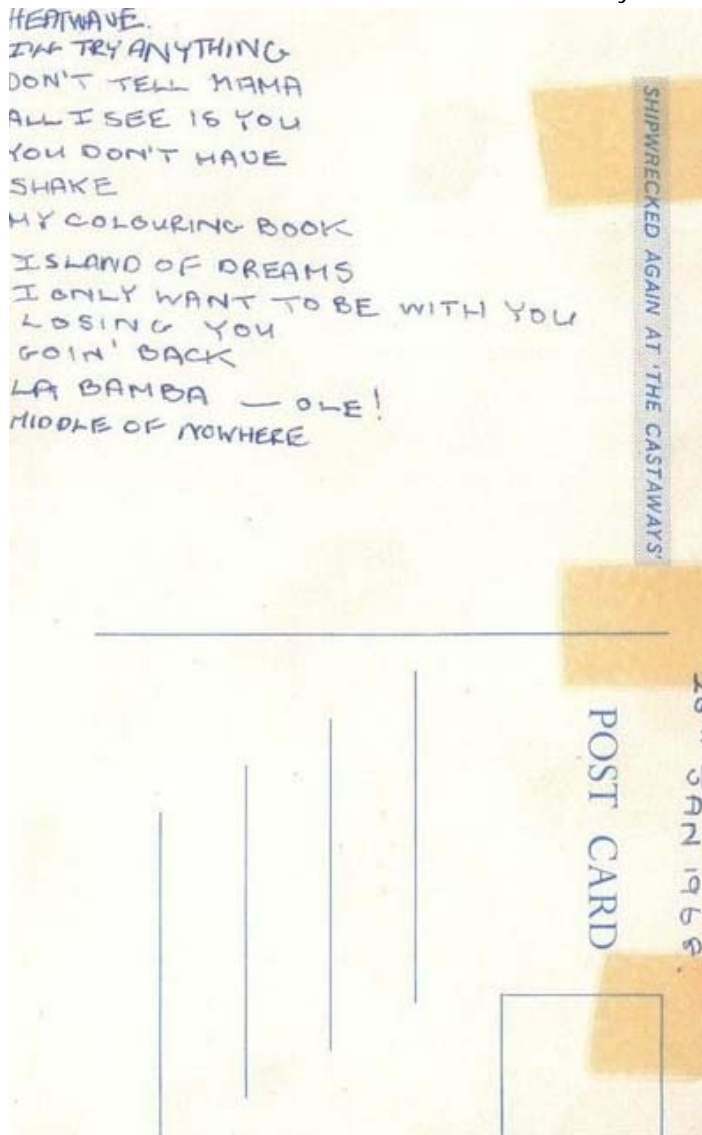 HEATWAVE.
I'LL TRY ANYTHING
DON'T TELL MAMA
ALL I SEE IS YOU
YOU DON'T HAVE
SHAKE
MY COLOURING BOOK
ISLAND OF DREAMS
I ONLY WANT TO BE WITH YOU
LOSING YOU
GOIN' BACK
LA BAMBA — OLE!
MIDDLE OF NOWHERE
SHIPWRECKED AGAIN AT 'THE CASTAWAYS'
POST CARD
JAN 1968.